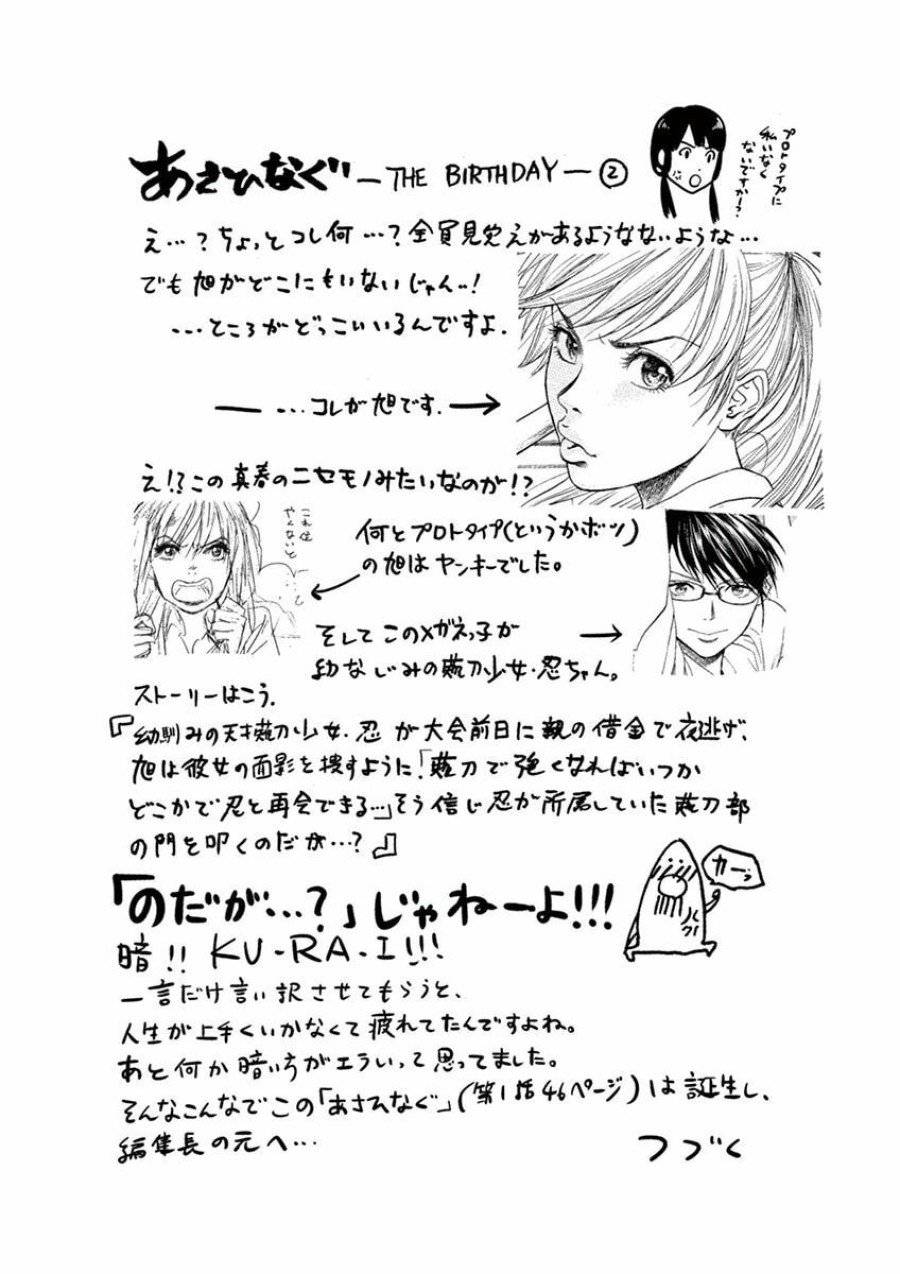 あさひなぐ ― THE BIRTHDAY ― ②
プロトタイプに
私いなく
ないですか!?
え…?ちょっとコレ何…?全員見覚えがあるようなないような…
でも旭がどこにもいないじゃん…!
…ところがどっこいいるんですよ.
―…コレが旭です.→
え!?この真春のニセモノみたいなのが!?
これ仕
やんないと
何とプロトタイプ(というかボツ)
の旭はヤンキーでした。
そしてこのメガネっ子が →
幼なじみの薙刀少女・忍ちゃん。
ストーリーはこう.
『幼馴みの天才薙刀少女・忍が大会前日に親の借金で夜逃げ、
旭は彼女の面影を捜すように「薙刀で強くなればいつか
どこかで忍と再会できる…」そう信じ忍が所属していた薙刀部
の門を叩くのだが…?』
「のだが…?」じゃねーよ!!!
カーッ
暗!! KU-RA-I!!!
一言だけ言い訳させてもらうと、
人生が上手くいかなくて疲れてたんですよね。
あと何か暗い方がエラいって思ってました。
そんなこんなでこの「あさひなぐ」(第1話46ページ)は誕生し、
編集長の元へ…
つづく